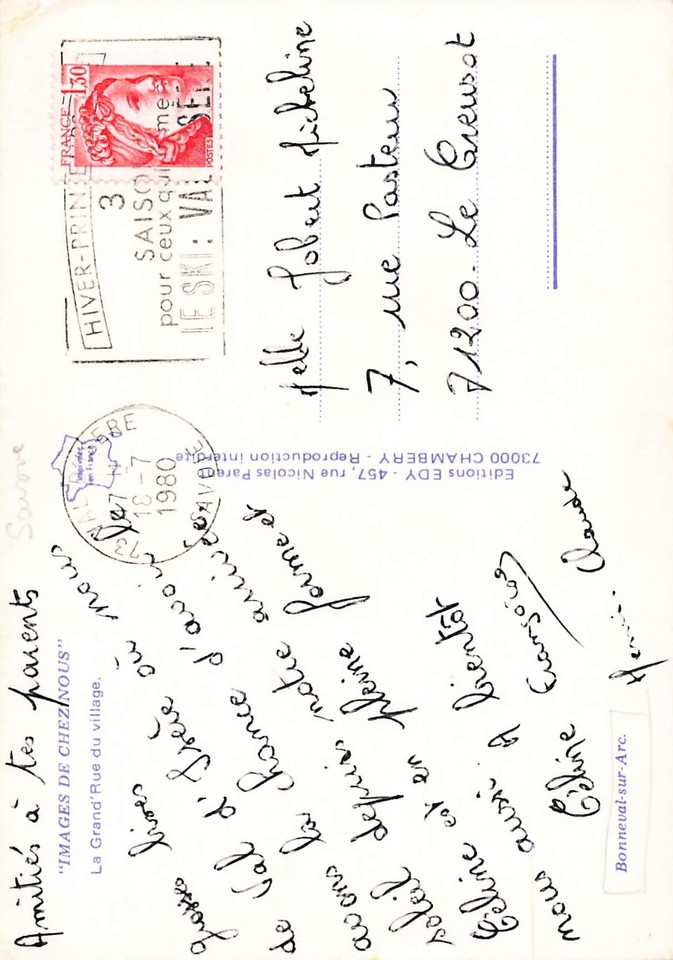 Amitiés à tes parents
"IMAGES DE CHEZ NOUS"
La Grand'Rue du village.
Grosses bises
de Val d'Isère où nous
avons la chance d'avoir
soleil depuis notre arrivée
Céline est en pleine forme et
nous aussi. A bientôt
Céline Françoise
Henri-Claude
Bonneval-sur-Arc.
Savoie
Editions EDY - 457, rue Nicolas Parent
73000 CHAMBERY - Reproduction interdite
18-7
1980
SAVOIE
FRANCE 1,30
POSTES
HIVER-PRIN
3
SAISO
pour ceux qui
LE SKI : VAL
Melle Jobert Micheline
7, rue Pasteur
71200 - Le Creusot